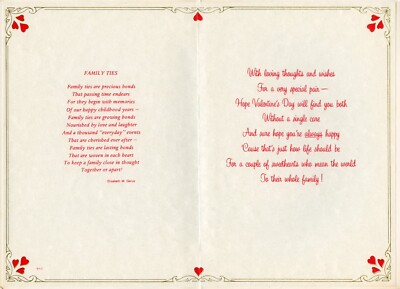 FAMILY TIES
Family ties are precious bonds
That passing time endears
For they begin with memories
Of our happy childhood years —
Family ties are growing bonds
Nourished by love and laughter
And a thousand "everyday" events
That are cherished ever after —
Family ties are lasting bonds
That are woven in each heart
To keep a family close in thought
Together or apart!
With loving thoughts and wishes
For a very special pair —
Hope Valentine's Day will find you both
Without a single care
And sure hope you're always happy
'Cause that's just how life should be
For a couple of sweethearts who mean the world
To their whole family!